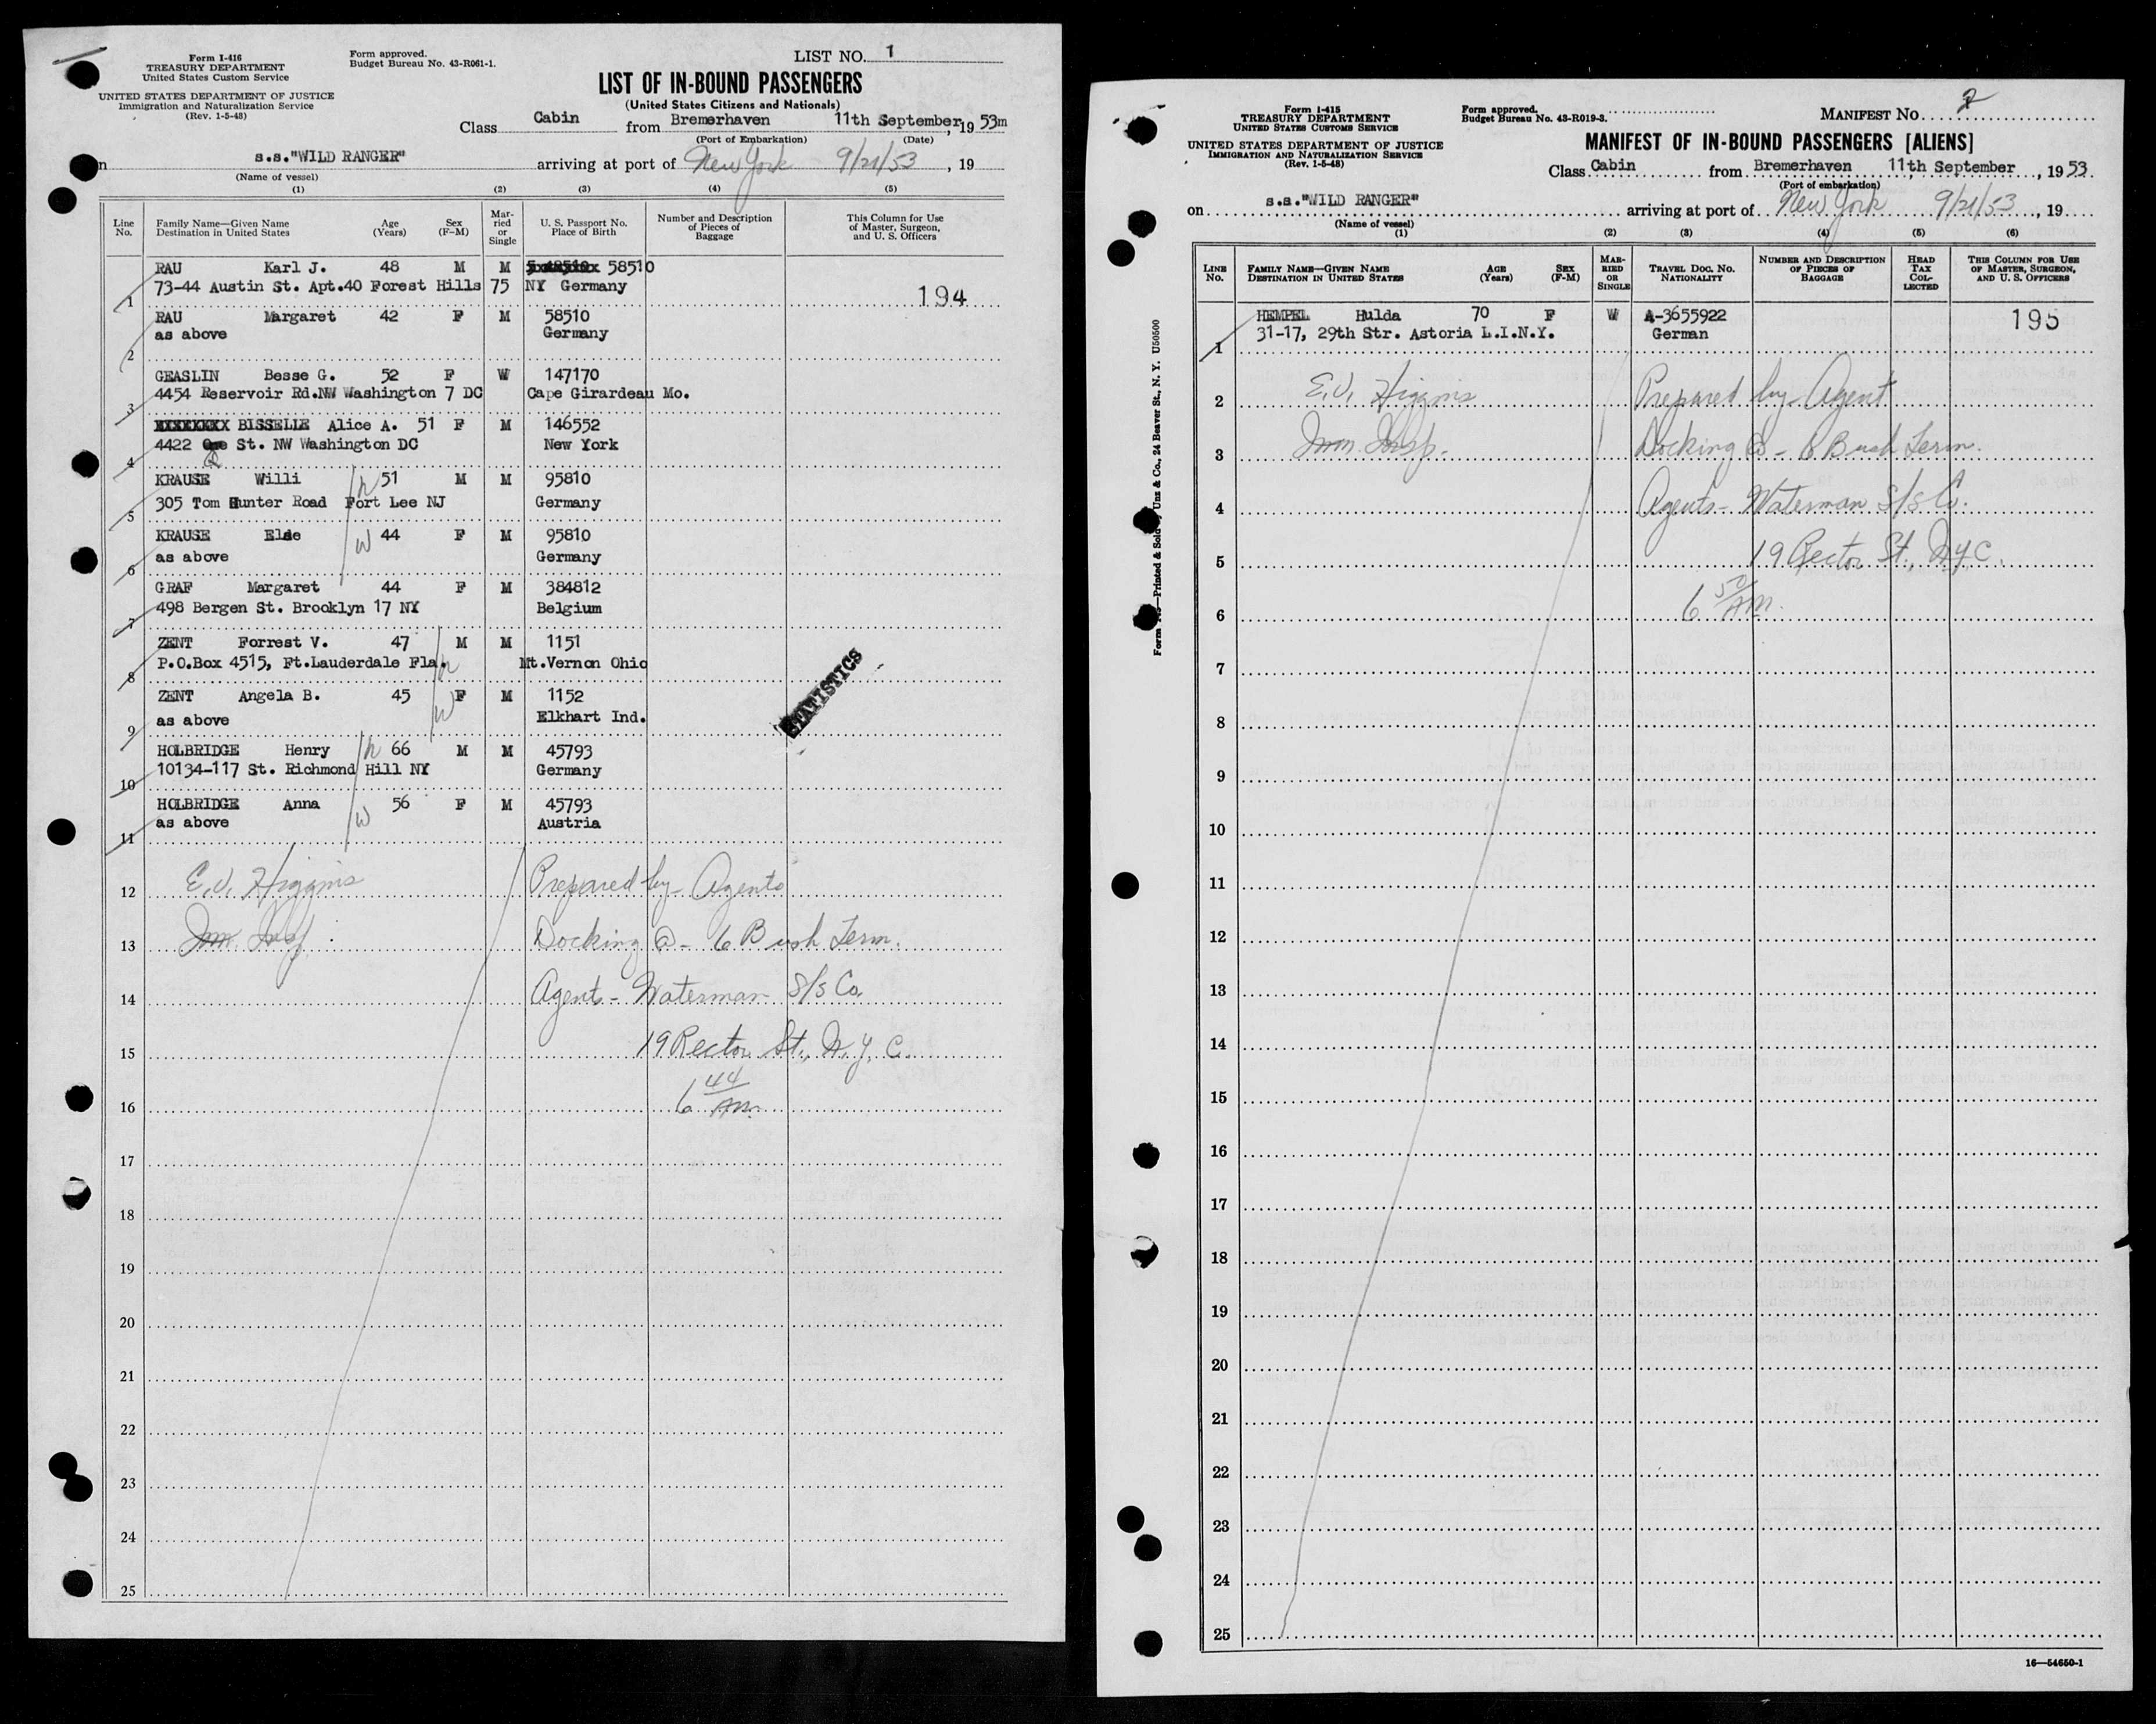 Form I-416
TREASURY DEPARTMENT
United States Custom Service
UNITED STATES DEPARTMENT OF JUSTICE
Immigration and Naturalization Service
(Rev. 1-5-48)
Form approved.
Budget Bureau No. 43-R061-1.
LIST NO. 1
LIST OF IN-BOUND PASSENGERS
(United States Citizens and Nationals)
Class Cabin from Bremerhaven 11th September, 19 53m
(Port of Embarkation) (Date)
n s.s."WILD RANGER" arriving at port of New York 9/21/53, 19
(Name of vessel)
(1) (2) (3) (4) (5)
Line No. Family Name—Given Name Destination in United States Age (Years) Sex (F-M) Married or Single U. S. Passport No. Place of Birth Number and Description of Pieces of Baggage This Column for Use of Master, Surgeon, and U. S. Officers
RAU Karl J. 48 M M 58510
1 73-44 Austin St. Apt.40 Forest Hills 75 NY Germany 194
RAU Margaret 42 F M 58510
2 as above Germany
GEASLIN Besse G. 52 F W 147170
3 4454 Reservoir Rd.NW Washington 7 DC Cape Girardeau Mo.
XXXXXXXX BISSELLE Alice A. 51 F M 146552
4 4422 Q St. NW Washington DC New York
KRAUSE Willi h 51 M M 95810
5 305 Tom Hunter Road Fort Lee NJ Germany
KRAUSE Else w 44 F M 95810
6 as above Germany
GRAF Margaret 44 F M 384812
7 498 Bergen St. Brooklyn 17 NY Belgium
ZENT Forrest V. 47 M M 1151
8 P.O.Box 4515, Ft.Lauderdale Fla. h Mt.Vernon Ohio
ZENT Angela B. 45 w F M 1152
9 as above Elkhart Ind.
STATISTICS
HOLBRIDGE Henry h 66 M M 45793
10 10134-117 St. Richmond Hill NY Germany
HOLBRIDGE Anna w 56 F M 45793
11 as above Austria
12 E.V. Higgins Prepared by Agents
13 Imm. Insp. Docking @ - 6 Bush Term.
14 Agents - Waterman S/S Co.
15 19 Rector St., N.Y.C.
16 6 44 AM.
17
18
19
20
21
22
23
24
25
Form I-415
TREASURY DEPARTMENT
UNITED STATES CUSTOMS SERVICE
UNITED STATES DEPARTMENT OF JUSTICE
IMMIGRATION AND NATURALIZATION SERVICE
(Rev. 1-5-48)
Form approved.
Budget Bureau No. 43-R019-3.
MANIFEST No. 2
MANIFEST OF IN-BOUND PASSENGERS [ALIENS]
Class Cabin from Bremerhaven 11th September, 19 53.
(Port of embarkation)
on s.s."WILD RANGER" arriving at port of New York 9/21/53, 19
(Name of vessel)
(1) (2) (3) (4) (5) (6)
LINE No. FAMILY NAME—GIVEN NAME DESTINATION IN UNITED STATES AGE (Years) SEX (F-M) MARRIED OR SINGLE TRAVEL DOC. NO. NATIONALITY NUMBER AND DESCRIPTION OF PIECES OF BAGGAGE HEAD TAX COLLECTED THIS COLUMN FOR USE OF MASTER, SURGEON, AND U. S. OFFICERS
HEMPEL Hulda 70 F W A-3655922 195
1 31-17, 29th Str. Astoria L.I.N.Y. German
2 E.V. Higgins Prepared by Agent
3 Imm. Insp. Docking @ - 6 Bush Term.
4 Agents - Waterman S/S Co.
5 19 Rector St., N.Y.C.
6 6 AM.
7
8
9
10
11
12
13
14
15
16
17
18
19
20
21
22
23
24
25
Printed & Sold Unz & Co., 24 Beaver St., N. Y. U50500
16—54650-1